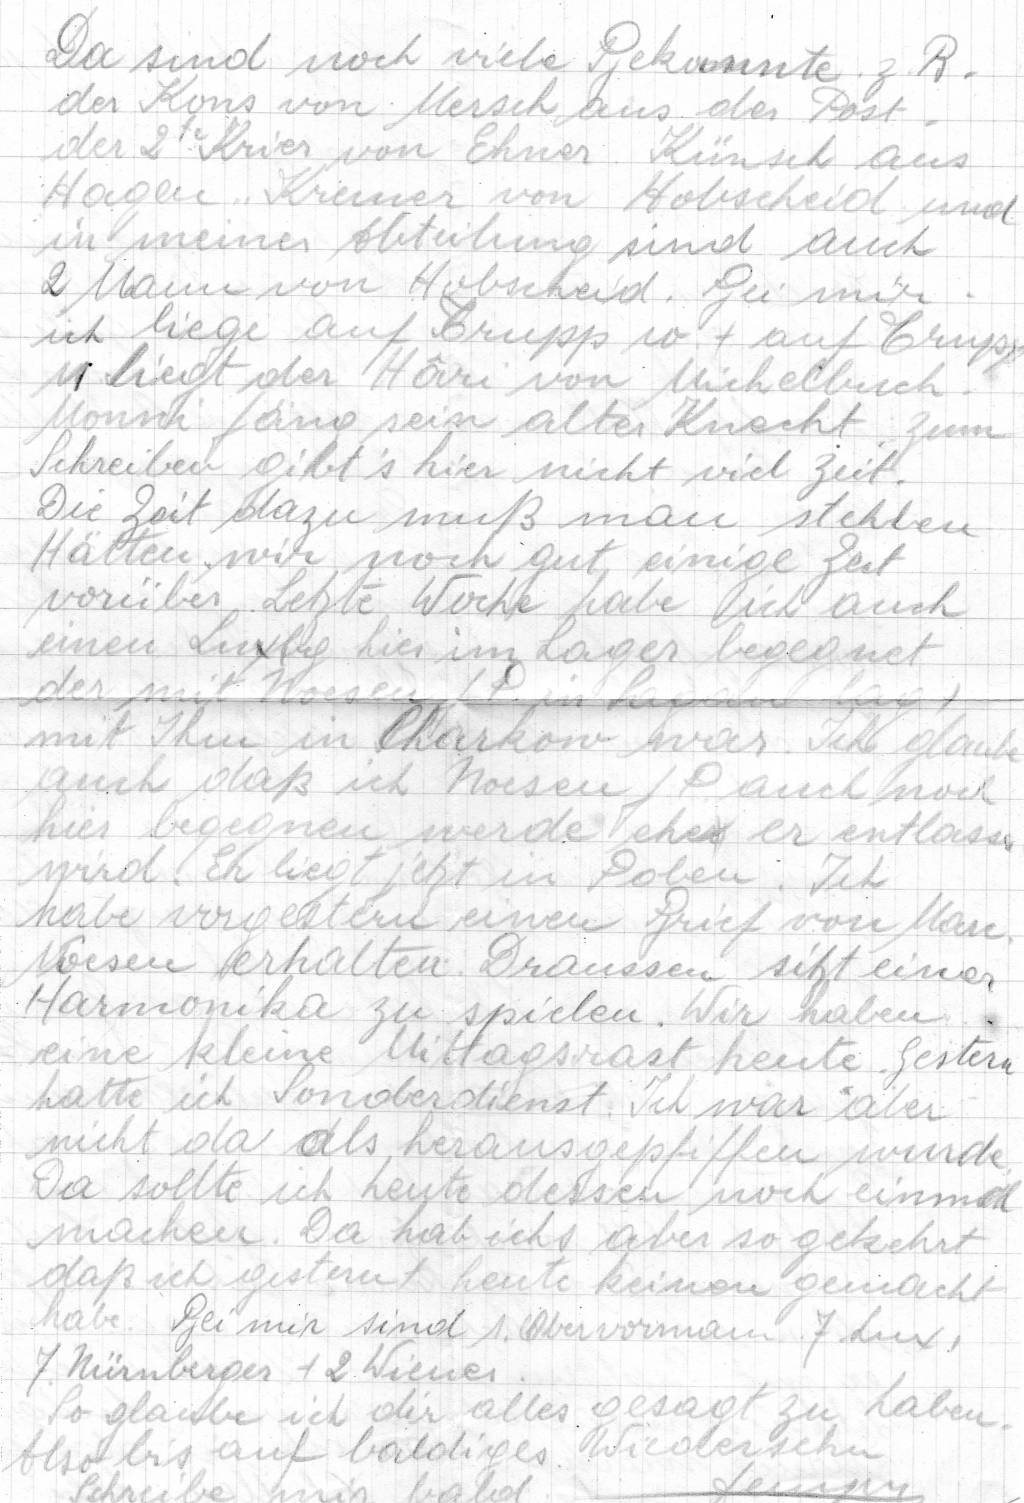 Da sind noch viele Bekannte z. B.
der Kons von Mersch aus der Post.
der 2te Krier von Ehner. Künsch aus
Hagen. Kremer von Hobscheid und
in meiner Abteilung sind auch
2 Mann von Hobscheid. Bei mir.
ich liege auf Trupp 10 + auf Trupp
11 liegt der von Michelbuch.
sein alter Knecht. Zum
Schreiben gibt's hier nicht viel Zeit.
Die Zeit dazu muß man stehlen
Hätten wir noch gut einige Zeit
vorüber. Letzte Woche habe ich auch
einen Luxbg hier im Lager begegnet
der mit Noesen J P in lag +
mit Ihm in Charkow war. Ich glaube
auch daß ich Noesen J P. auch noch
hier begegnen werde eher er entlassen
wird. Er liegt jetzt in Polen. Ich
habe vorgestern einen Brief von
Noesen erhalten. Draussen sitzt einer
Harmonika zu spielen. Wir haben
eine kleine Mittagsrast heute. Gestern
hatte ich Sonderdienst. Ich war aber
nicht da als herausgepfiffen wurde.
Da sollte ich heute dessen noch einmal
machen. Da hab ichs aber so gekehrt
daß ich gestern + heute keinen gemacht
habe. Bei mir sind 1. Obervormann 7 Lux,
7. Nürnberger + 2 Wiener.
So glaube ich dir alles gesagt zu haben.
Also bis auf baldiges Wiedersehn
Schreibe mir bald.